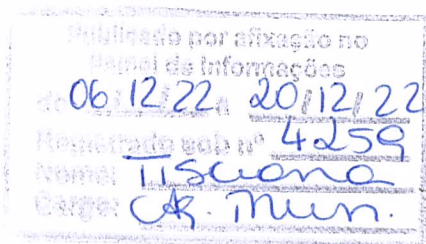 Publicado por afixação no
Painel de Informações
de 06/12/22 a 20/12/22
Registrado sob nº 4259
Nome:
Cargo: Ag. Mun.